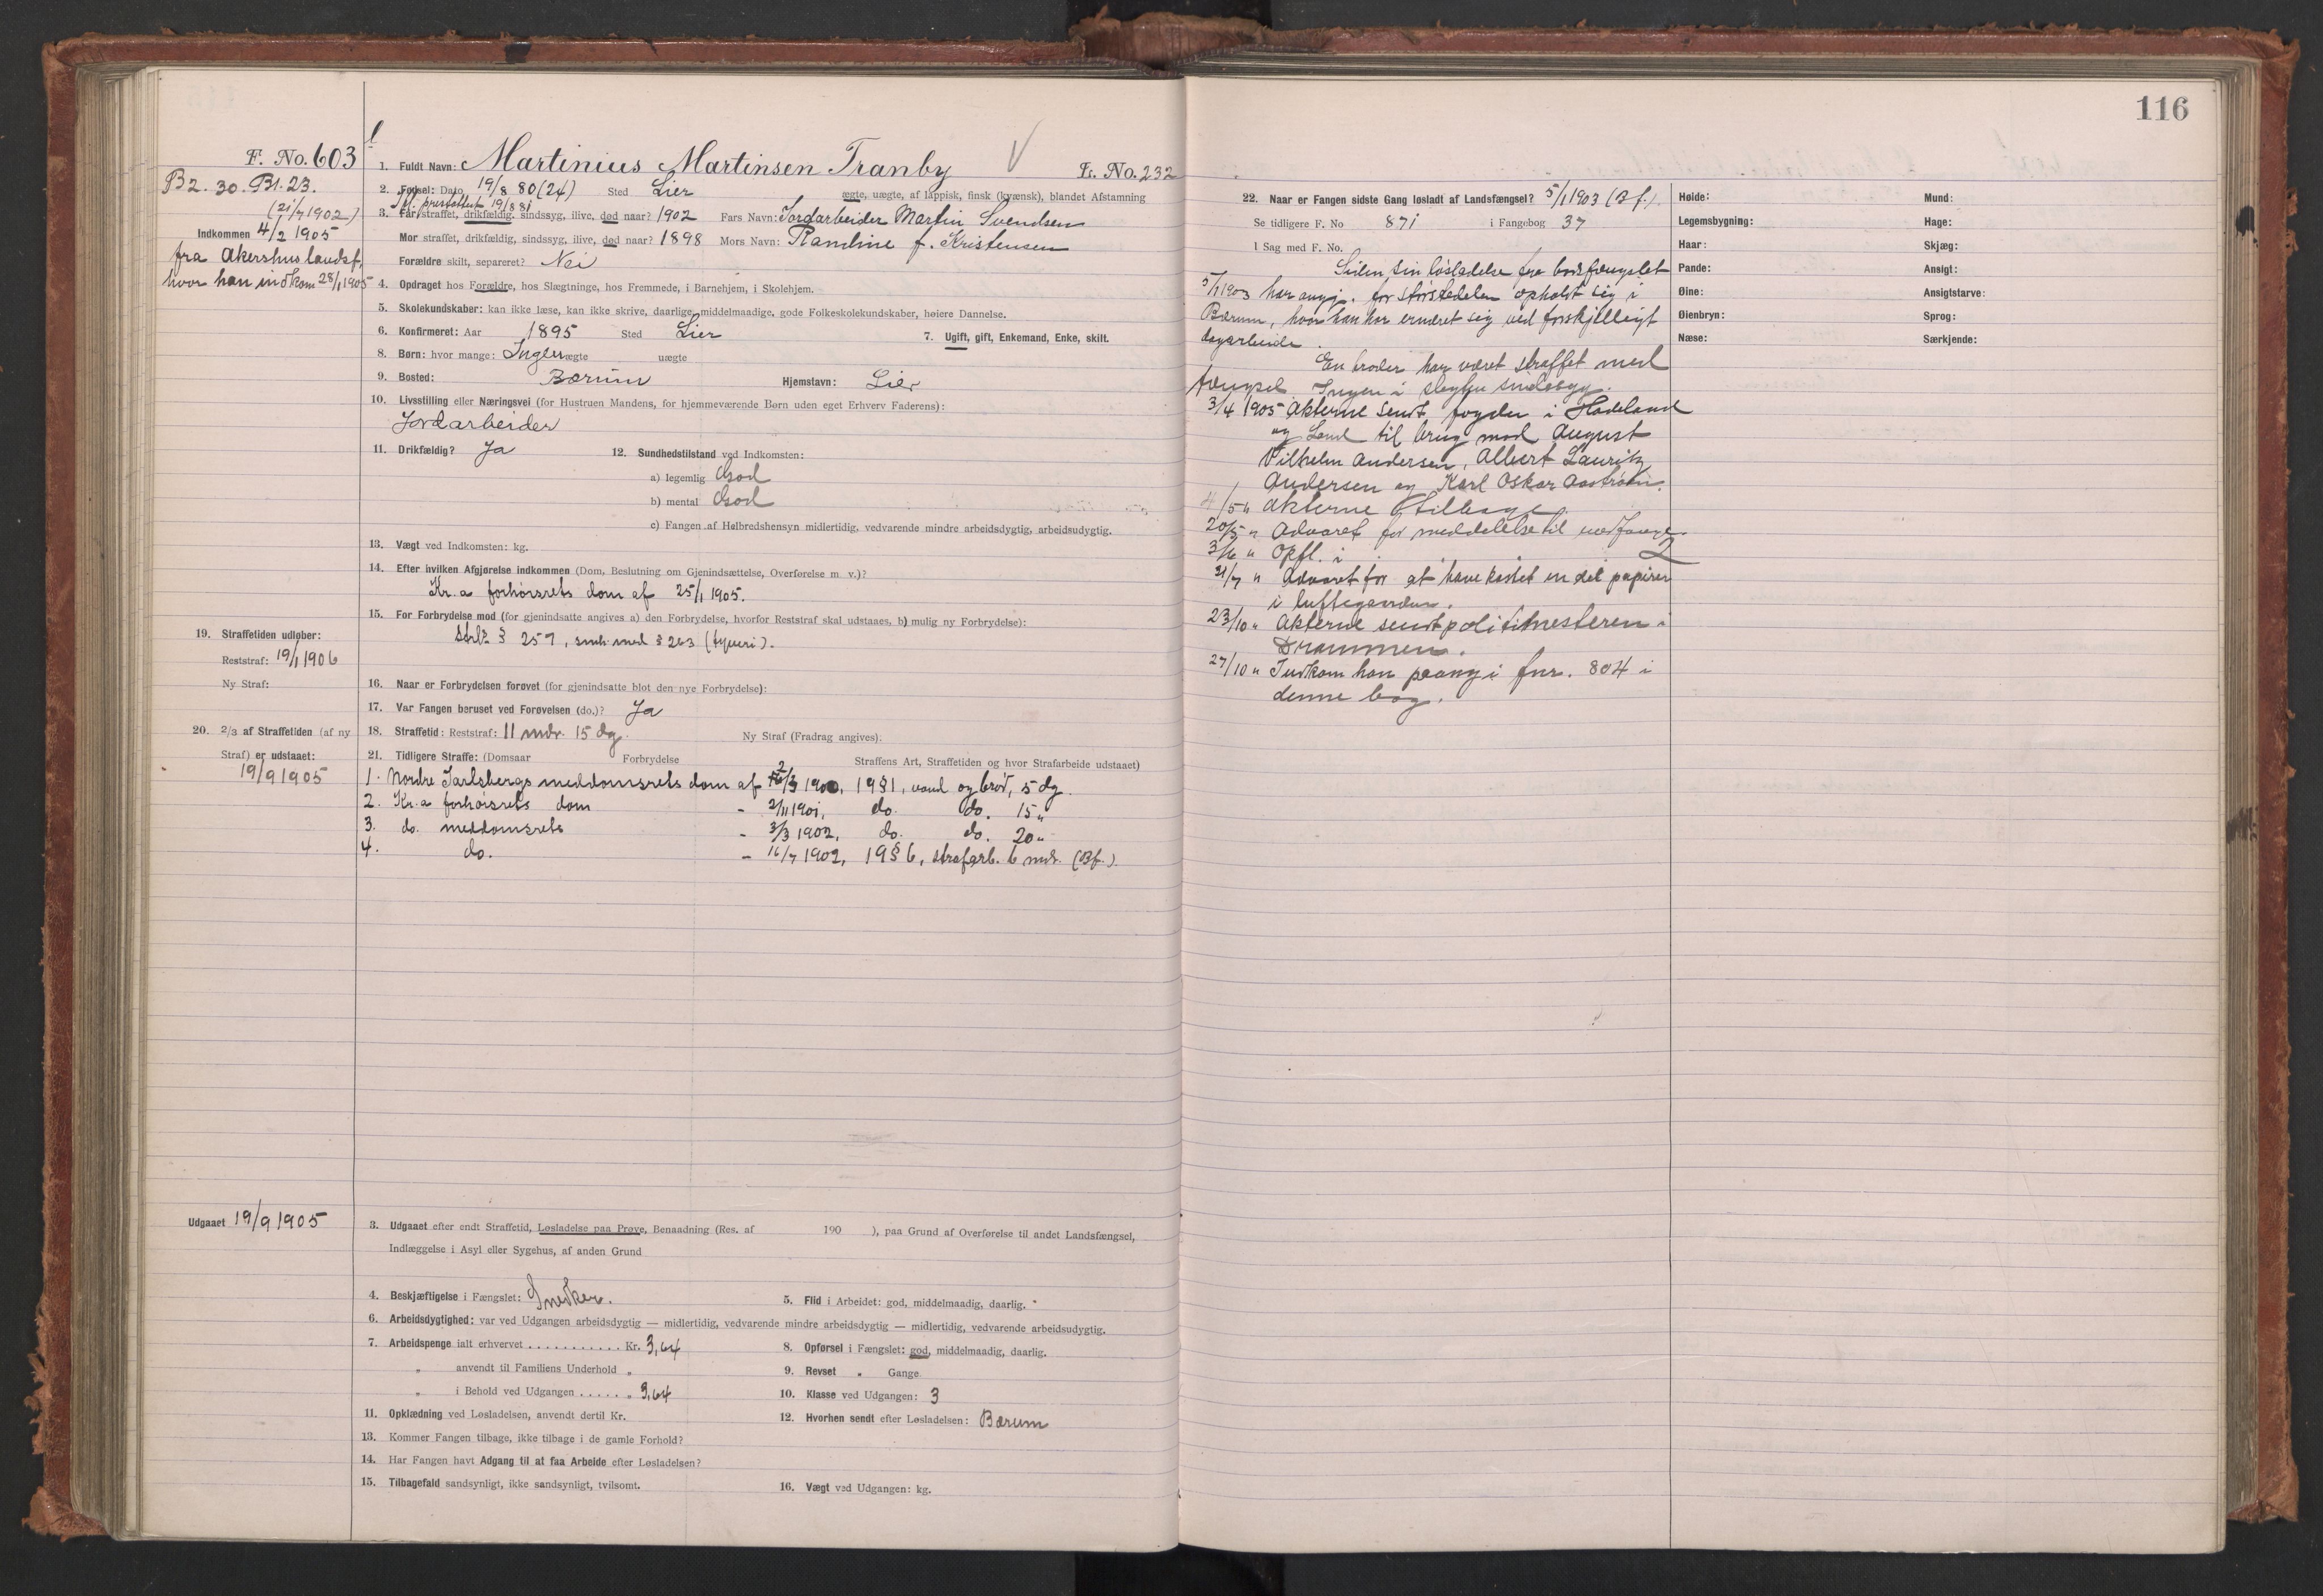 116
F. No. 603
B 2. 30. Bl. 23.
(21/7 1902)
Indkommen 4/2 1905
fra Akershus landsf.
hvor han indkom 28/1 1905
1. Fuldt Navn: Martinius Martinsen Tranby Fr. No. 232
2. Fødsel: Dato 19/8 80 (24) Sted Lier ægte, uægte, af lappisk, finsk (kvænsk), blandet Afstamning
flg. prestattest 19/8 81
3. Far straffet, drikfældig, sindssyg, ilive, død naar? 1902 Fars Navn: Jordarbeider Martin Svendsen
Mor straffet, drikfældig, sindssyg, ilive, død naar? 1898 Mors Navn: Randine f. Kristensen
Forældre skilt, separeret? Nei
4. Opdraget hos Forældre, hos Slægtninge, hos Fremmede, i Barnehjem, i Skolehjem.
5. Skolekundskaber: kan ikke læse, kan ikke skrive, daarlige, middelmaadige, gode Folkeskolekundskaber, høiere Dannelse.
6. Konfirmeret: Aar 1895 Sted Lier 7. Ugift, gift, Enkemand, Enke, skilt.
8. Børn: hvor mange: Ingen ægte uægte
9. Bosted: Bærum Hjemstavn: Lier
10. Livsstilling eller Næringsvei (for Hustruen Mandens, for hjemmeværende Børn uden eget Erhverv Faderens):
Jordarbeider
11. Drikfældig? Ja 12. Sundhedstilstand ved Indkomsten:
a) legemlig God
b) mental God
c) Fangen af Helbredshensyn midlertidig, vedvarende mindre arbeidsdygtig, arbeidsudygtig.
13. Vægt ved Indkomsten: kg.
14. Efter hvilken Afgjørelse indkommen (Dom, Beslutning om Gjenindsættelse, Overførelse m. v.)?
Kr.a forhørsrets dom af 25/1 1905.
15. For Forbrydelse mod (for gjenindsatte angives a) den Forbrydelse, hvorfor Reststraf skal udstaaes, b) mulig ny Forbrydelse):
Strl. § 257, smh. med § 263 (tyveri).
19. Straffetiden udløber:
Reststraf: 19/1 1906
Ny Straf:
16. Naar er Forbrydelsen forøvet (for gjenindsatte blot den nye Forbrydelse):
17. Var Fangen beruset ved Forøvelsen (do.)? Ja
20. 2/3 af Straffetiden (af ny
Straf) er udstaaet:
19/9 1905
18. Straffetid: Reststraf: 11 mdr. 15 dg. Ny Straf (Fradrag angives):
21. Tidligere Straffe: (Domsaar Forbrydelse Straffens Art, Straffetiden og hvor Strafarbeide udstaaet)
1. Nordre Jarlsbergs meddomsrets dom af 2/3 1900, 19 § 1, vand og brød, 5 dg.
2. Kr.a forhørsrets dom - 2/11 1901, do. do. 15 "
3. do. meddomsrets - 3/3 1902, do. do. 20 "
4. do. - 16/7 1902, 19 § 6, strafarb. 6 mdr. (Bf.)
Udgaaet 19/9 1905
3. Udgaaet efter endt Straffetid, Løsladelse paa Prøve, Benaadning (Res. af 190 ), paa Grund af Overførelse til andet Landsfængsel,
Indlæggelse i Asyl eller Sygehus, af anden Grund
4. Beskjæftigelse i Fængslet: Snedker. 5. Flid i Arbeidet: god, middelmaadig, daarlig.
6. Arbeidsdygtighed: var ved Udgangen arbeidsdygtig — midlertidig, vedvarende mindre arbeidsdygtig — midlertidig, vedvarende arbeidsudygtig.
7. Arbeidspenge ialt erhvervet . . . . . . . . . . . Kr. 3,64 8. Opførsel i Fængslet: god, middelmaadig, daarlig.
" anvendt til Familiens Underhold " 9. Revset " Gange
" i Behold ved Udgangen . . . . . . " 3,64 10. Klasse ved Udgangen: 3
11. Opklædning ved Løsladelsen, anvendt dertil Kr. 12. Hvorhen sendt efter Løsladelsen: Bærum
13. Kommer Fangen tilbage, ikke tilbage i de gamle Forhold?
14. Har Fangen havt Adgang til at faa Arbeide efter Løsladelsen?
15. Tilbagefald sandsynligt, ikke sandsynligt, tvilsomt. 16. Vægt ved Udgangen: kg.
22. Naar er Fangen sidste Gang løsladt af Landsfængsel? 5/1 1903 (Bf.)
Se tidligere F. No 871 i Fangebog 37
I Sag med F. No.
Siden sin løsladelse fra bodsfængslet
5/1 1903 har angj. for størstedelen opholdt sig i
Bærum, hvor han har ernæret sig ved forskjelligt
dagarbeide.
En broder har været straffet med
fængsel. Ingen i slegten sindssyg.
3/4 1905 Akterne sendt fogden i Hadeland
og Land til brug mod August
Vilhelm Andersen, Albert Lauritz
Andersen og Karl Oskar Aastrøm.
4/5 " Akterne tilbage.
20/5 " Advaret for meddelelse til medfange.
3/6 " Opfl. i 2
31/7 " Advaret for at have kastet en del papirer
i luftegaarden.
23/10 " Akterne sendt politimesteren i
Drammen.
27/10 " Indkom han paany i fnr. 804 i
denne bog.
Høide: Mund:
Legemsbygning: Hage:
Haar: Skjæg:
Pande: Ansigt:
Øine: Ansigtstarve:
Øienbryn: Sprog:
Næse: Særkjende: